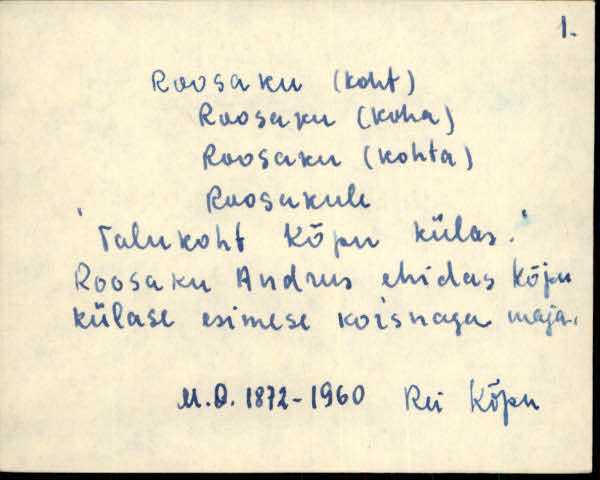 1.
Roosaku (koht)
Roosaku (koha)
Roosaku (kohta)
Roosakule
'Talukoht Kõpu külas.'
Roosaku Andrus ehidas Kõpu
külase esimese korsnaga maja.
M.O. 1872-1960 Rei Kõpu